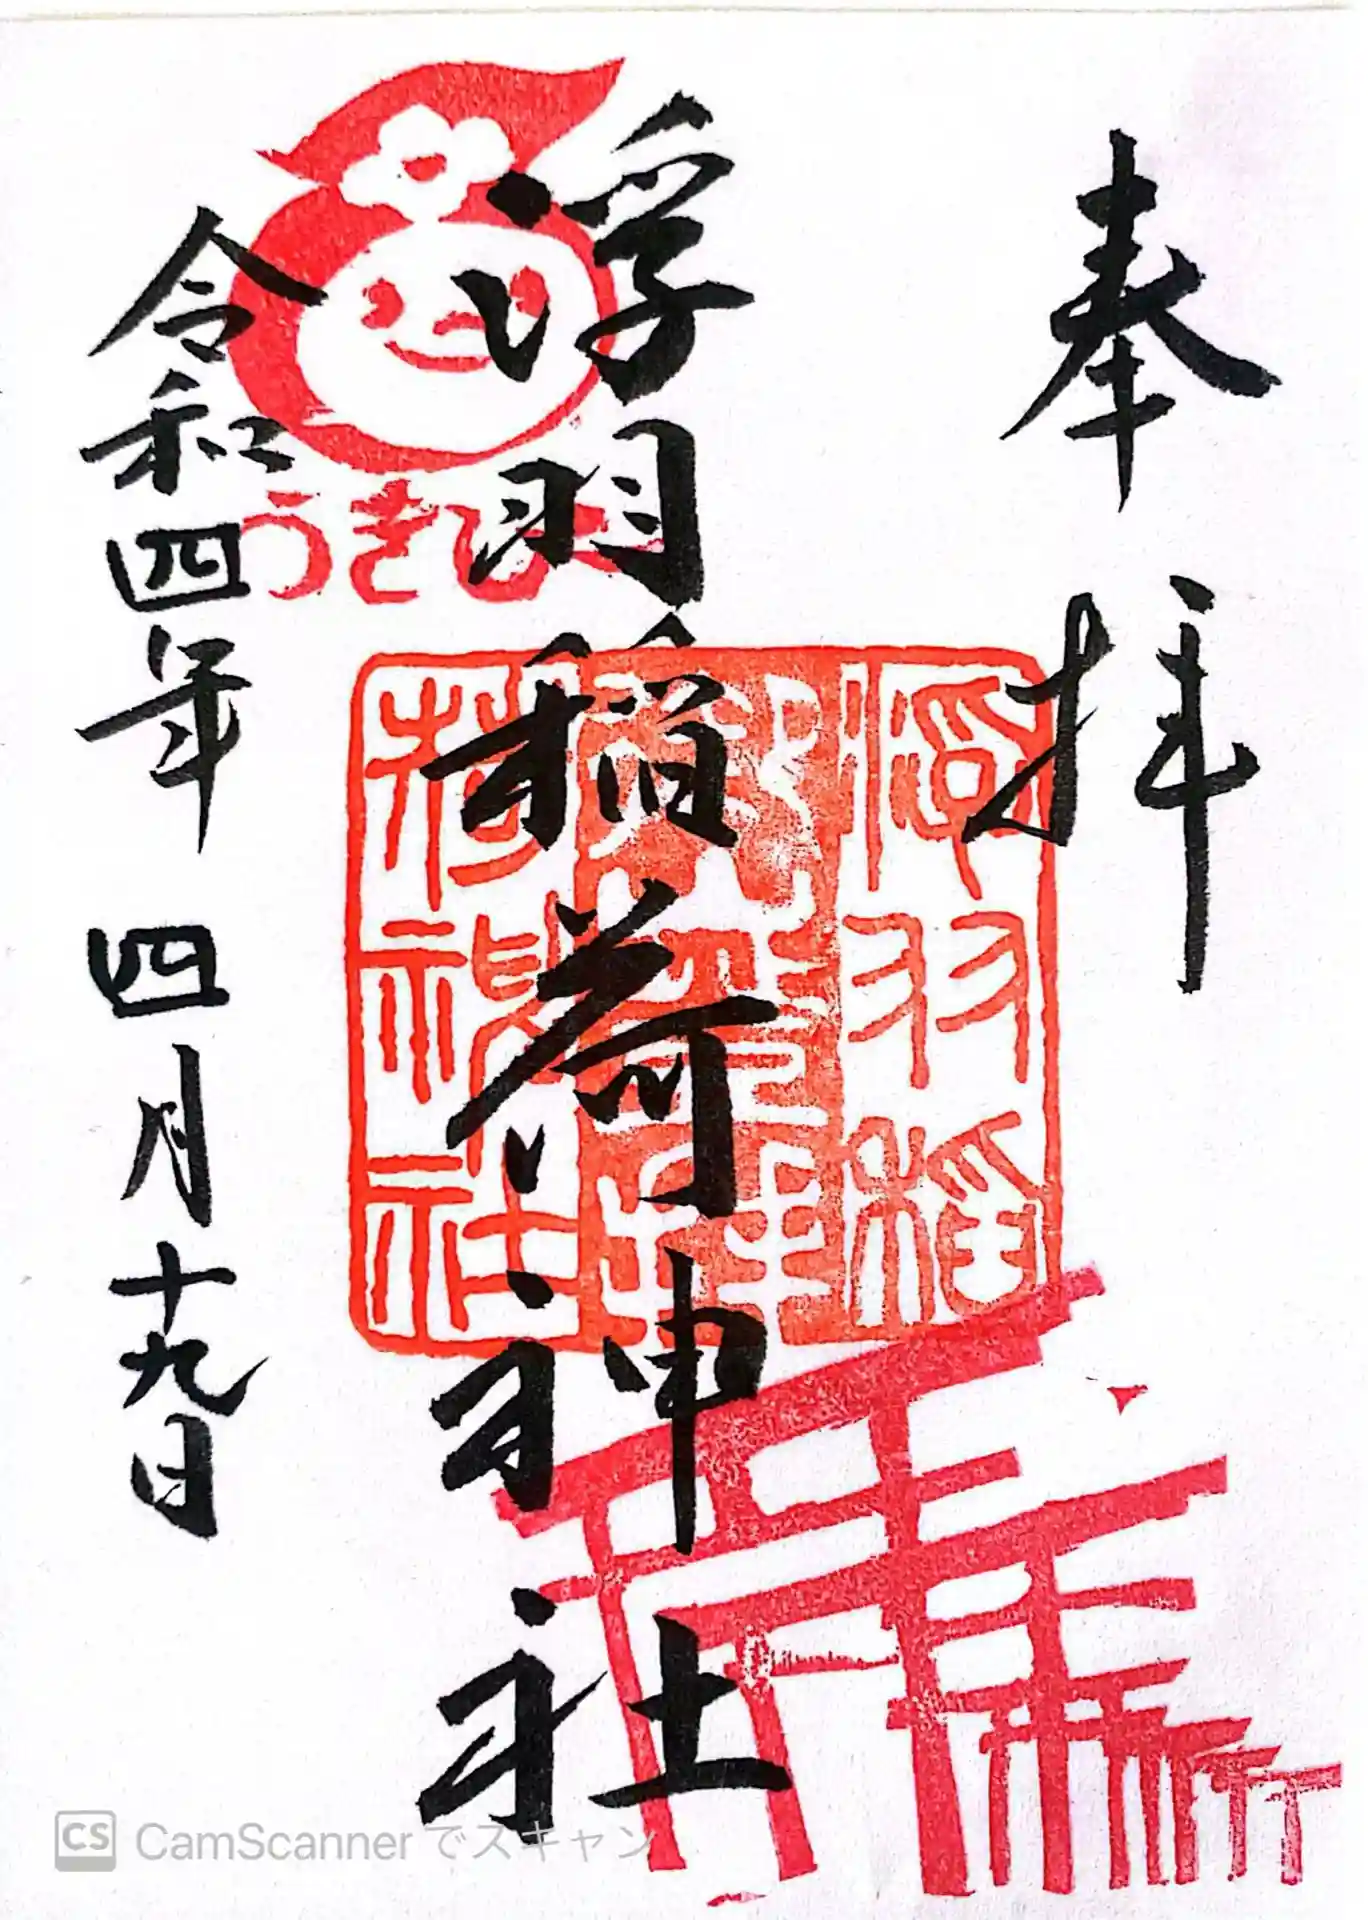 奉拝
浮羽稲荷神社
令和四年四月十九日
うきぴー
浮羽稲
荷神社
CamScanner でスキャン